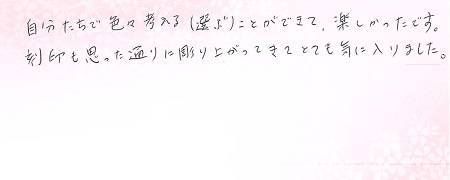 自分たちで色々考える(選ぶ)ことができて、楽しかったです。
刻印も思った通りに彫り上がってきてとても気に入りました。